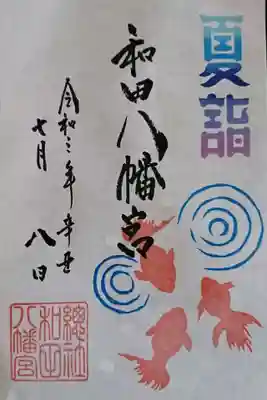 夏詣
和田八幡宮
令和三年辛丑
七月八日
總社
和田
八幡宮